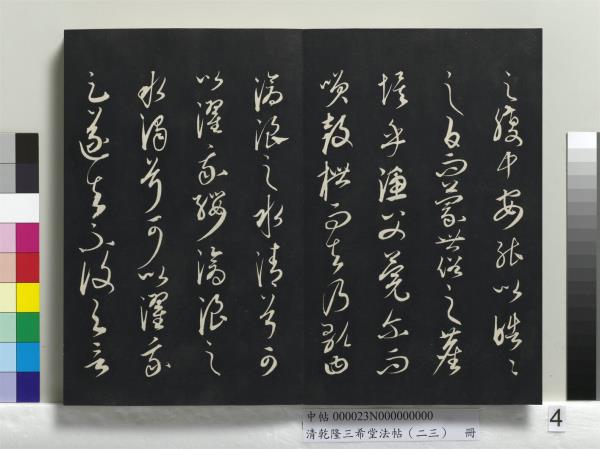 之腹中安能以皓〻
之白而蒙世俗之塵
埃乎漁父莞尔而
笑鼓枻而去乃歌曰
滄浪之水清兮可
以濯吾纓滄浪之
水濁兮可以濯吾
足遂去不復与言
中帖 000023N000000000
清乾隆三希堂法帖（二三） 冊
4